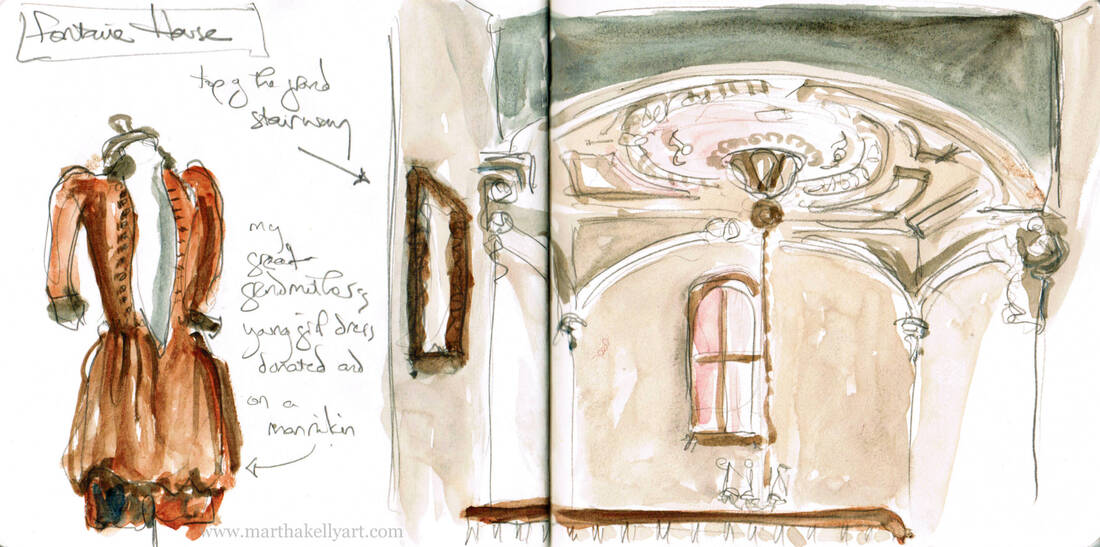 Fontaine House
top of the grand
stairway
my
great
grandmother's
young girl dress
donated and
on a
mannikin
www.marthakellyart.com